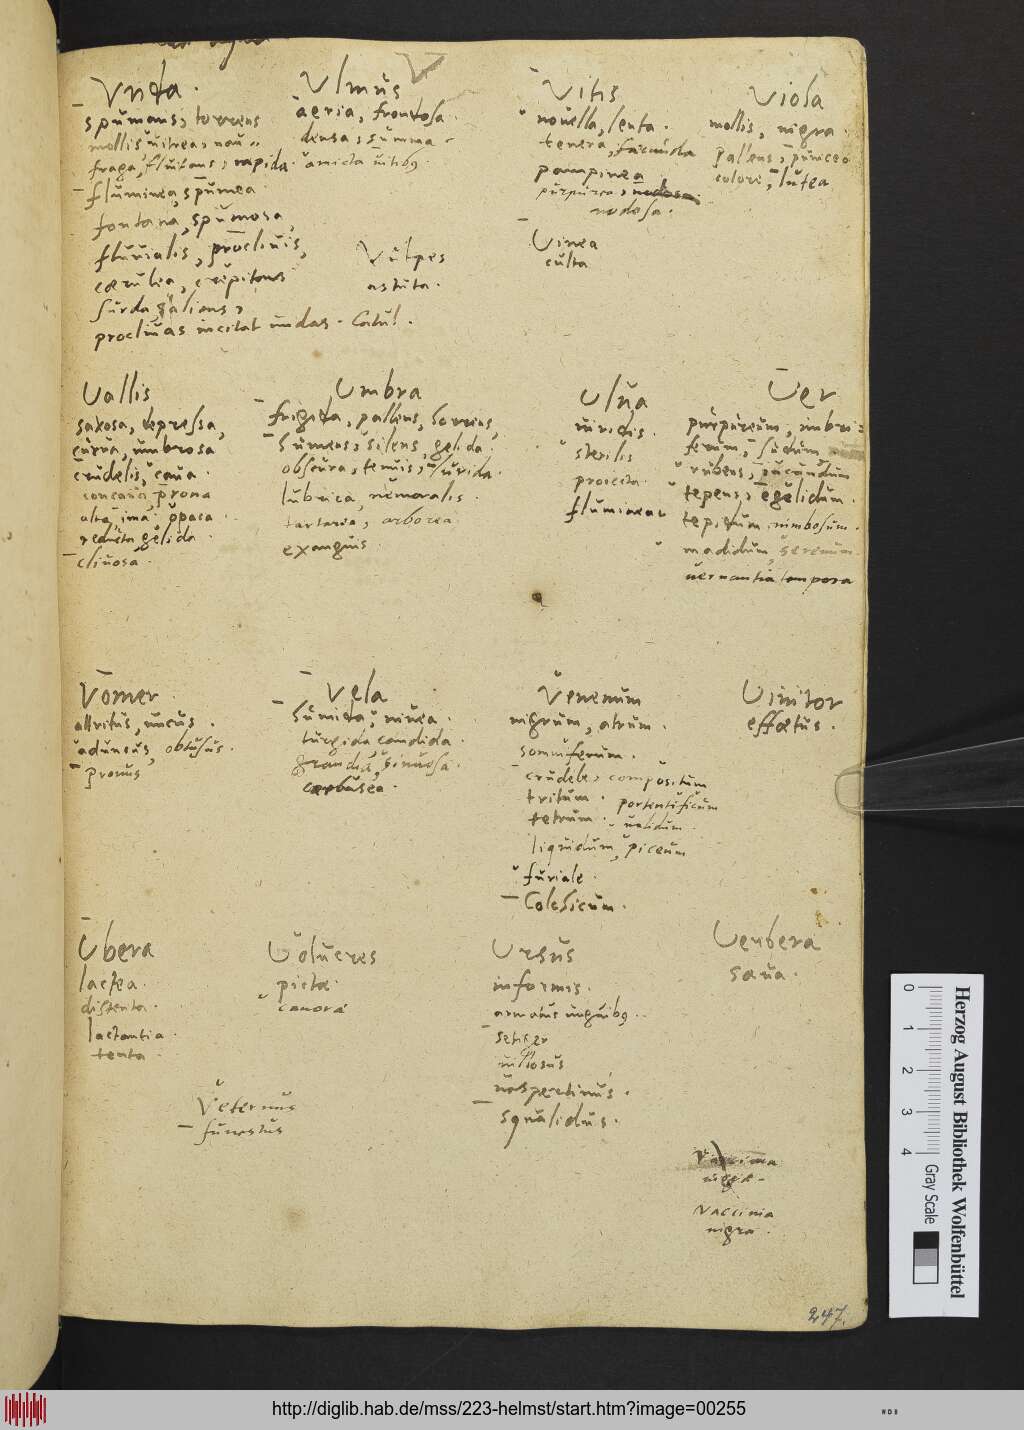 V
Vnda.
spumans, torrens
mollis uitrea, nau„
fraga, fluitans, rapida.
fluminea, spumea
fontana, spumosa,
fluuialis, procliuis,
cærulea, crepitans
surda, saliens,
procliuas incitat undas. Catul.
Vlmus
aeria, frondosa.
densa, summa
amicta uitibꝯ.
Vulpes
astuta.
Vitis
nouella, lenta.
tenera, fæcunda
pampinea
purpurea, nodosa
nodosa.
Vinea
culta
Viola
mollis, nigra.
pallens, puniceo
colore, lutea
Uallis
saxosa, depressa,
curua, umbrosa
crudelis, caua.
concaua, prona
alta, ima, opaca.
reducta gelida.
cliuosa.
Umbra
frigida, pallens, horrens,
humens, silens, gelida.
obscura, tenuis, lurida.
lubrica, nemoralis.
tartarea, arborea
exanguis.
Ulua
uiridis.
sterilis
proiecta.
fluminea
Uer
purpureum, imbri:
ferum, sudum
rubens, iucundum
tepens, egelidum.
tepidum, nimbosum.
madidum, serenum
uernantia tempora
Vomer
attritus, uncus.
aduncus, obtusus.
pronus
Vela
humida, niuea.
turgida, candida.
grandia, sinuosa.
carbasea.
Venenum
nigrum, atrum.
somniferum.
crudele, compositum
tritum. portentificum
tetrum. ualidum.
liquidum, piceum
furiale.
Colchicum.
Uinitor
effœtus.
Ubera
lactea.
distenta.
lactantia.
tenta.
Uolucres
pictæ.
canoræ
Ursus
informis.
armatus unguibꝯ.
setiger
uillosus
uespertinus.
squalidus.
Uerbera
sæua.
Veternus
funestus
Vaccinia
nigra
Vaccinia
nigra.
247.
0 1 2 3 4
Herzog August Bibliothek Wolfenbüttel
Gray Scale
http://diglib.hab.de/mss/223-helmst/start.htm?image=00255